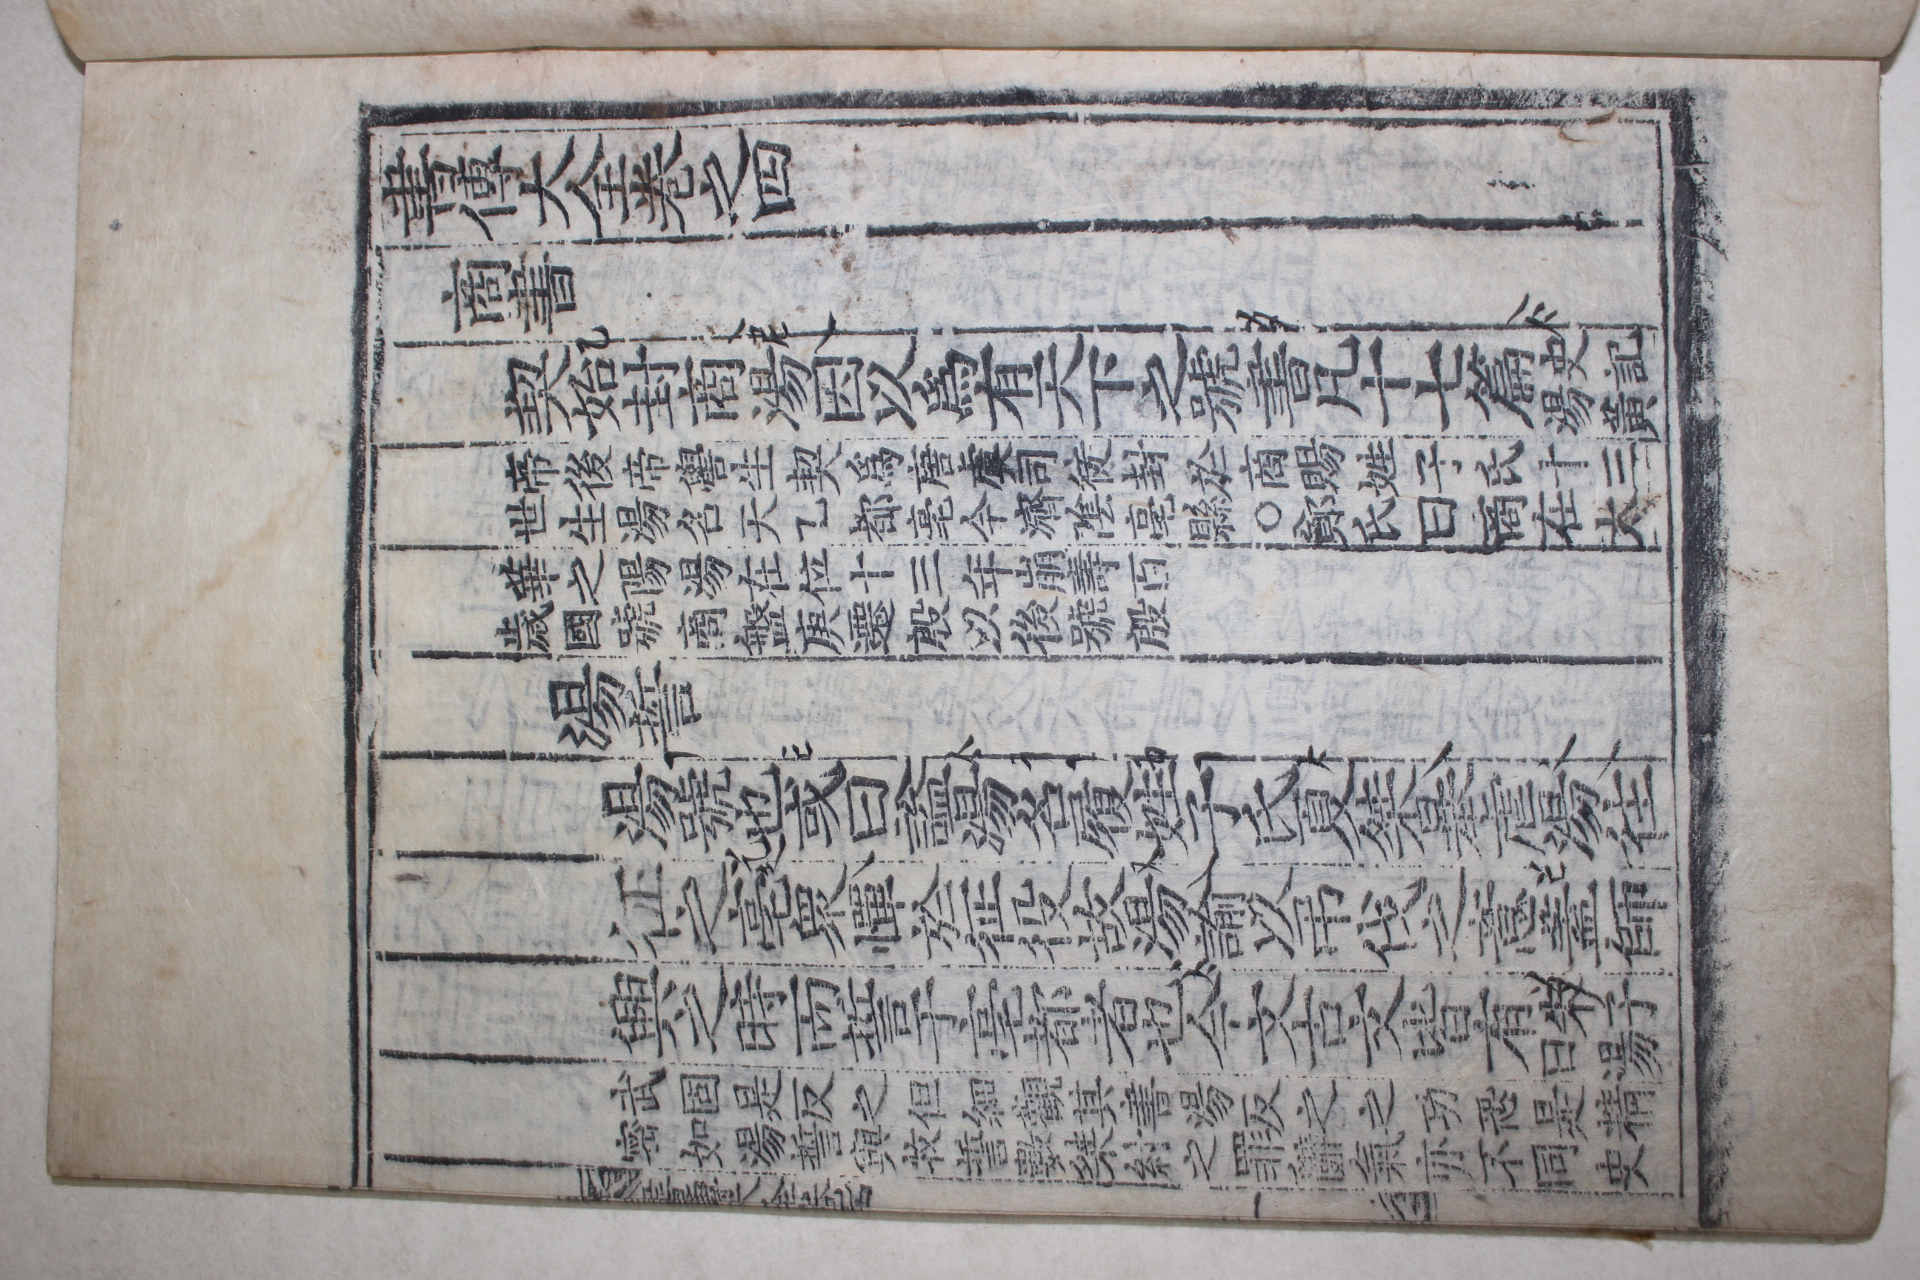 書傳大全卷之四
商書
契始封商湯因以爲有天下之號書凡十七篇史記
湯黃
帝後帝嚳生契爲唐虞司徒封於商賜姓子氏十三
世生湯名天乙都亳今濟陰亳縣○鄭氏曰商在太
華之陽湯在位十三年崩壽百
歲國號商盤庚遷殷以後號殷
湯誓
湯號也或曰諡湯名履姓子氏夏桀暴虐湯往
征之亳衆憚於征役故湯諭以弔伐之意蓋師
興之時而誓于亳都者也今文古文皆有朱子
曰湯
武固是反之但細觀其書湯反之之功恐是精
密如湯誓與牧誓數桀紂之罪辭氣亦不同史